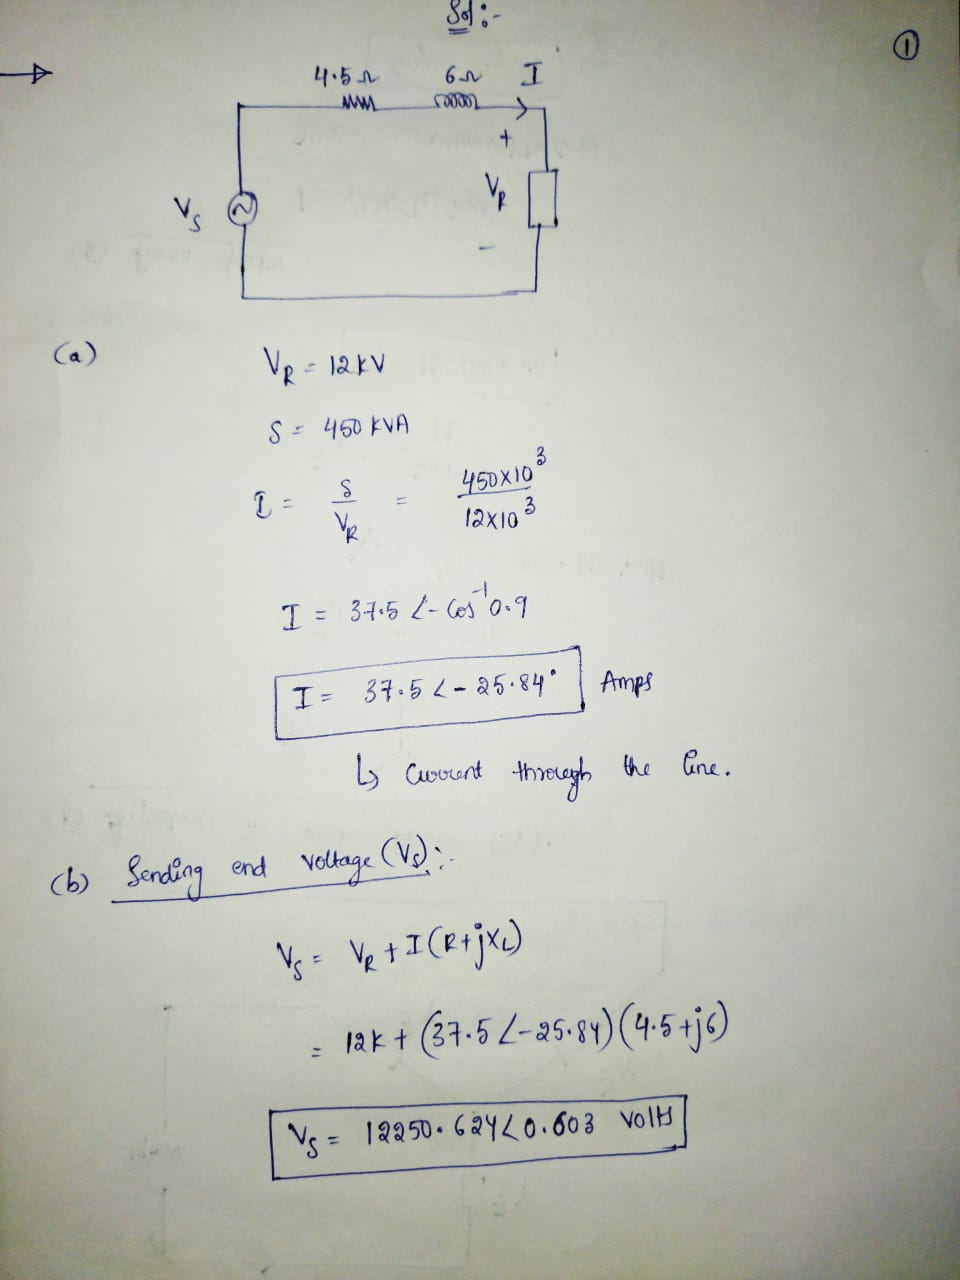 Sol :-
①
4.5 Ω 6 Ω I
+
V_S V_R
-
(a) V_R = 12 KV
S = 450 KVA
I = S / V_R = 450×10³ / 12×10³
I = 37.5 ∠- Cos⁻¹ 0.9
I = 37.5 ∠ - 25.84° Amps
↳ Current through the line.
(b) Sending end voltage (V_S) :-
V_S = V_R + I (R+jX_L)
= 12K + (37.5 ∠-25.84) (4.5 +j6)
V_S = 12250.624 ∠ 0.603 Volts